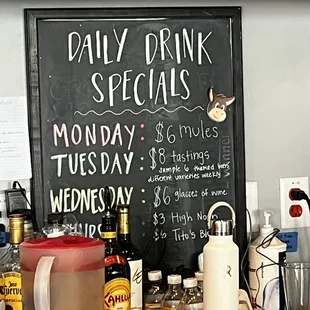 DAILY DRINK
SPECIALS
MONDAY: $6 mules
TUESDAY: $8 tastings
sample 6 themed beers
different varieties weekly
WEDNESDAY $6 glasses of wine
THURS $3 High Noon
Tito's
Cuervo
KAHLÚA